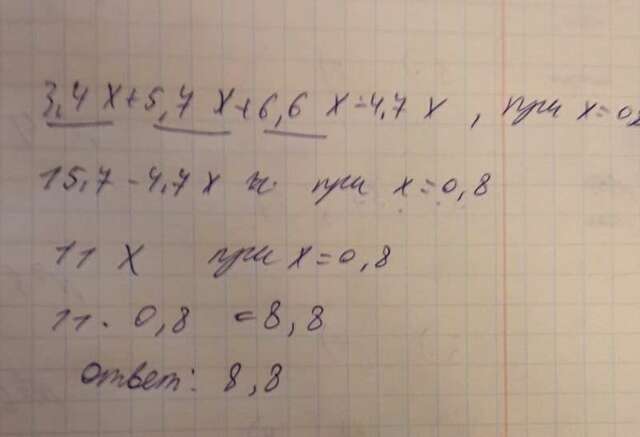 3,4 x + 5,7 x + 6,6 x - 4,7 x , при x = 0,
15,7 - 4,7 x при x = 0,8
11 x при x = 0,8
11 . 0,8 = 8,8
ответ: 8,8